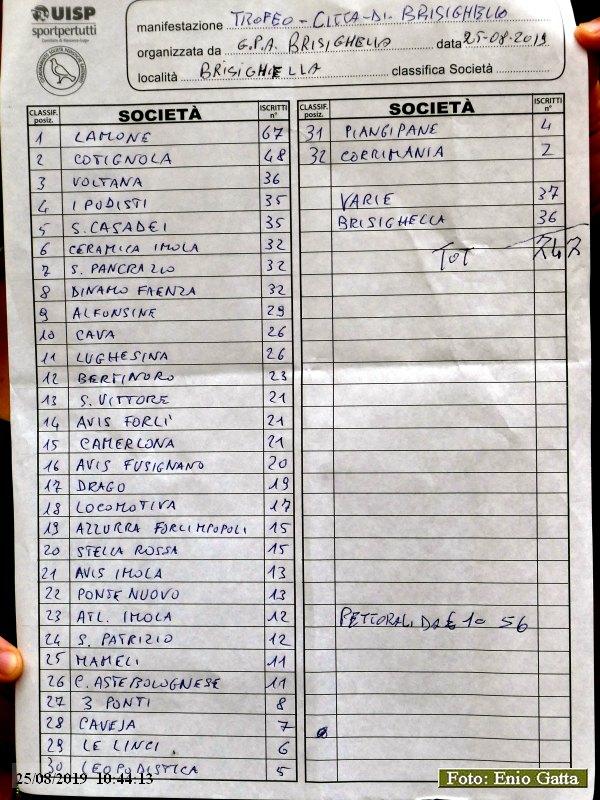 UISP
sportpertutti
manifestazione TROFEO - CITTA - DI. BRISIGHELLO
organizzata da G.P.A. BRISIGHELLO data 25-08-2019
località BRISIGHELLA classifica Società
CLASSIF. posiz. SOCIETÀ ISCRITTI n°
1 LAMONE 67
2 COTIGNOLA 48
3 VOLTANA 36
4 I PODISTI 35
5 S. CASADEI 35
6 CERAMICA IMOLA 32
7 S. PANCRAZIO 32
8 DINAMO FAENZA 32
9 ALFONSINE 29
10 CAVA 26
11 LUGHESINA 26
12 BERTINORO 23
13 S. VITTORE 21
14 AVIS FORLI' 21
15 CAMERLONA 21
16 AVIS FUSIGNANO 20
17 DRAGO 19
18 LOCOMOTIVA 17
19 AZZURRA FORLIMPOPOLI 15
20 STELLA ROSSA 15
21 AVIS IMOLA 13
22 PONTE NUOVO 13
23 ATL. IMOLA 12
24 S. PATRIZIO 12
25 MAMELI 11
26 C. ASTEBOLOGNESE 11
27 3 PONTI 8
28 CAVEJA 7
29 LE LINCI 6
30 LEOPODISTICA 5
CLASSIF. posiz. SOCIETÀ ISCRITTI n°
31 PIANGIPANE 4
32 CORRIMANIA 2
VARIE 37
BRISIGHELLA 36
TOT 747
PETTORALI DA € 10 56
25/08/2019 10:44:13
Foto: Enio Gatta